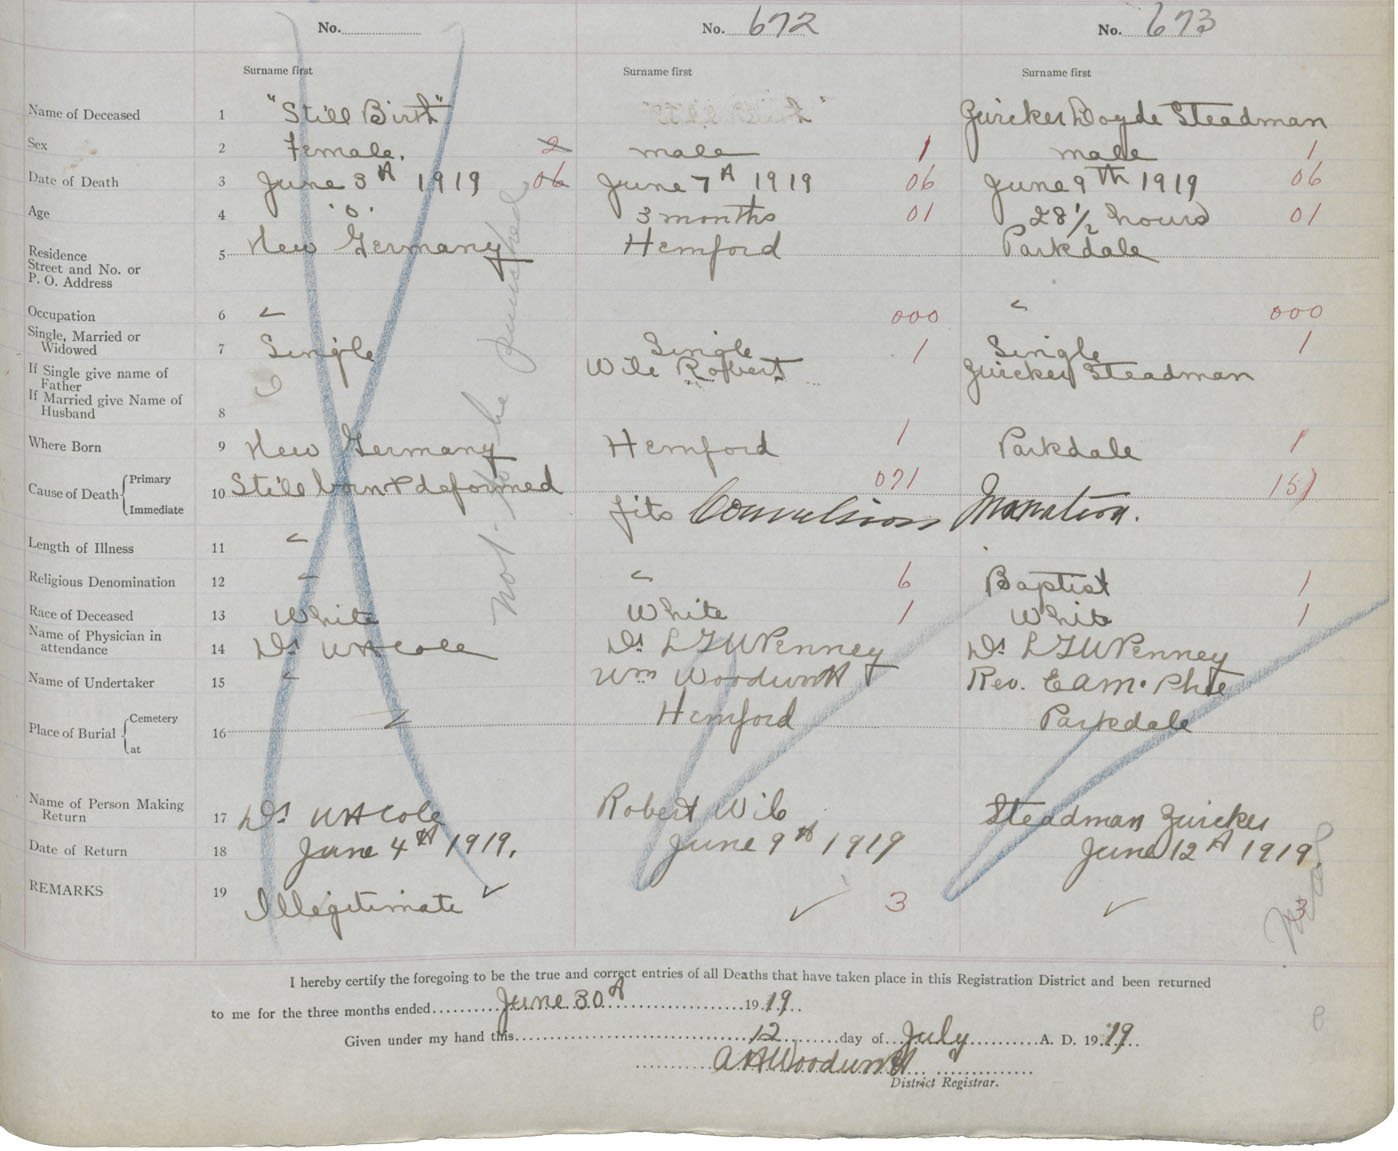 No. No. 672 No. 673
Surname first Surname first Surname first
Name of Deceased 1 "Still Birth" Zuicker Doyde Steadman
Sex 2 Female. 2 male 1 male 1
Date of Death 3 June 3th 1919 06 June 7th 1919 06 June 9th 1919 06
Age 4 "0" 3 months 01 28 1/2 hours 01
Residence Street and No. or P. O. Address 5 New Germany Hemford Parkdale
Occupation 6 " 000 " 000
Single, Married or Widowed 7 Single Single 1 Single 1
If Single give name of Father Wile Robert Zuicker Steadman
If Married give Name of Husband 8
Where Born 9 New Germany Hemford 1 Parkdale 1
Cause of Death { Primary Immediate 10 Still born & deformed fits Convulsions 071 Inanation. 151
Length of Illness 11 "
Religious Denomination 12 " " 6 Baptist 1
Race of Deceased 13 White White 1 White 1
Name of Physician in attendance 14 Dr W H Cole Dr L F W Penney Dr L F W Penney
Name of Undertaker 15 " Wm Woodworth Rev. E A Mc Phee
Place of Burial { Cemetery at 16 " Hemford Parkdale
Name of Person Making Return 17 Dr W H Cole Robert Wile Steadman Zuicker
Date of Return 18 June 4th 1919. June 9th 1919 June 12th 1919.
REMARKS 19 Illegitimate ✓ ✓ 3 ✓ 3
Not to be
I hereby certify the foregoing to be the true and correct entries of all Deaths that have taken place in this Registration District and been returned
to me for the three months ended June 30th 1919.
Given under my hand this 12 day of July A. D. 1919
A H Woodworth
District Registrar.